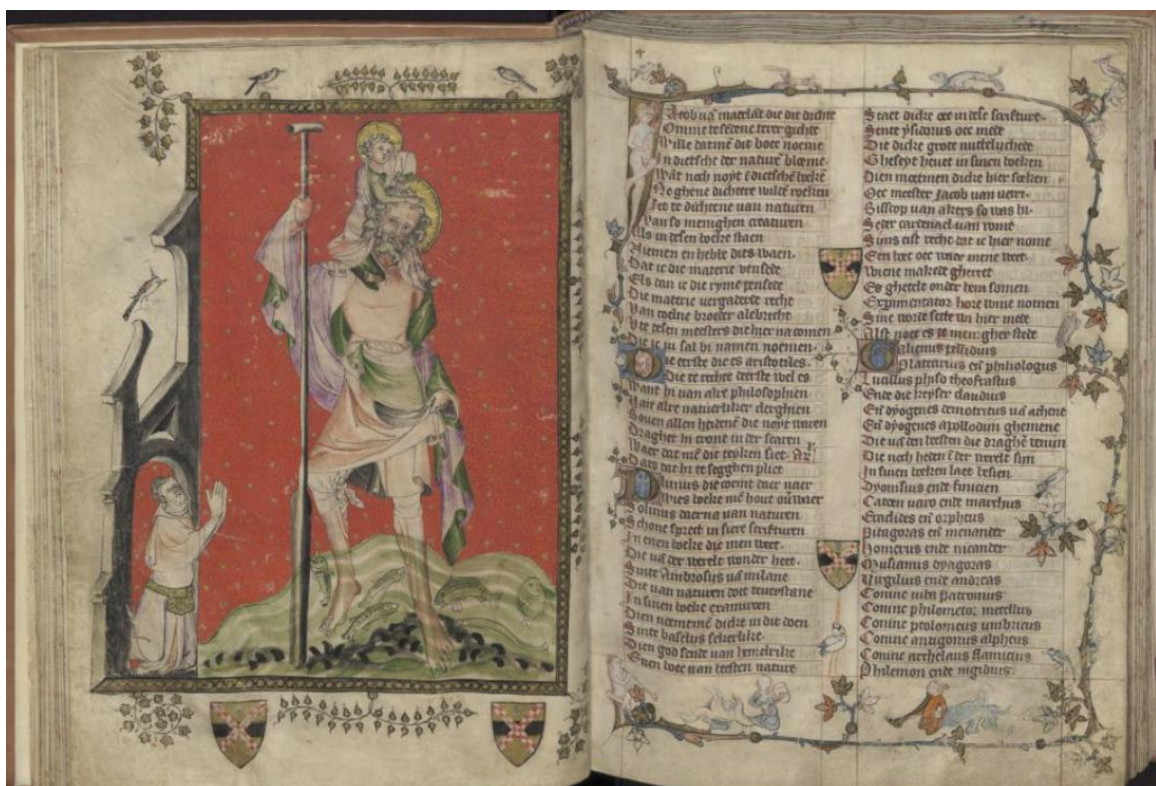 Jacob vā maerlāt die dit dichte
Omme te sēdene tere gichte
Wille dat mē dit boec noeme
In dietsche der naturē bloeme
Wāt noch noyt ī dietschē boekē
Ne ghene dichtere wilde roeken
Jet te dichtene van naturen
Van so menighen creaturen
Als in desen boeke staen
Niemen en hebbe dies waen
Dat ic die materie vensede
Els dan ic die ryme pensede
Die materie vergaderde recht
Van coelne broeder alebrecht
Vte desen meesters die hier na comen
Die ic iu sal bi namen noemen
De eerste die es aristotiles
Die te rechte deerste wel es
Want hi van alre philosophien
Van alre naturliker clerghien
Boven allen heidenē die noyt waren
Draghet hi crone in der scaren
Waer dat mē dit teyken siet ar
Dats dat hi te segghen pliet
Plinius die coemt daer naer
Wies boeke mē hout ouer waer
Solinus daerna van naturen
Schone sprect in siere scrifturen
In enen boeke die men weet
Die vā der werelt wonder heet
Sinte Ambrosius vā milane
Die van naturen doet te verstane
In sinen boeke examiron
Dien neemmē dicke in dit doen
Sinte baselius sekerlike
Dien god sende van hemelrike
Enen boec van beesten nature
Staet dicke oec in dese scrifture
Sente ysidorus oec mede
Die dicke grote nuttelichede
Gheseyt hevet in sinen boeken
Dien moetmen dicke hier soeken
Oec meester Jacob van vetri
Bisscop van akers so was hi
Seder cardenael van rome
Sijns eist recht dat ic hier nome
Een boec oec waer mene weet
Wiene makede ghereet
Es ghetelt onder hem somen
Expimentator hore wine nomen
Sine worde sette wi hier mede
Alst noet es te menigher stede
Galienus pallidius
Platearius en̄ phisiologus
Lucillus phiso theofrastus
Ende die keyser claudius
En̄ dyogenes demotritus vā athene
En̄ dyogenes apollodun ghemene
Die vā den beesten die draghē venim
Die noch heden ī der werelt sijn
In sinen boeken laet lesien
Dyonisius ende finicien
Catoen varo ende marchus
Eradides en̄ orpheus
Pitagoras en̄ menander
Homerus ende nicander
Musianus dyagoras
Virgilius ende andreas
Coninc iuba patronus
Coninc philometor metellus
Coninc ptolomeus umbricus
Coninc antigonus alpheus
Coninc archelaus flauicius
Philemon ende nigidius